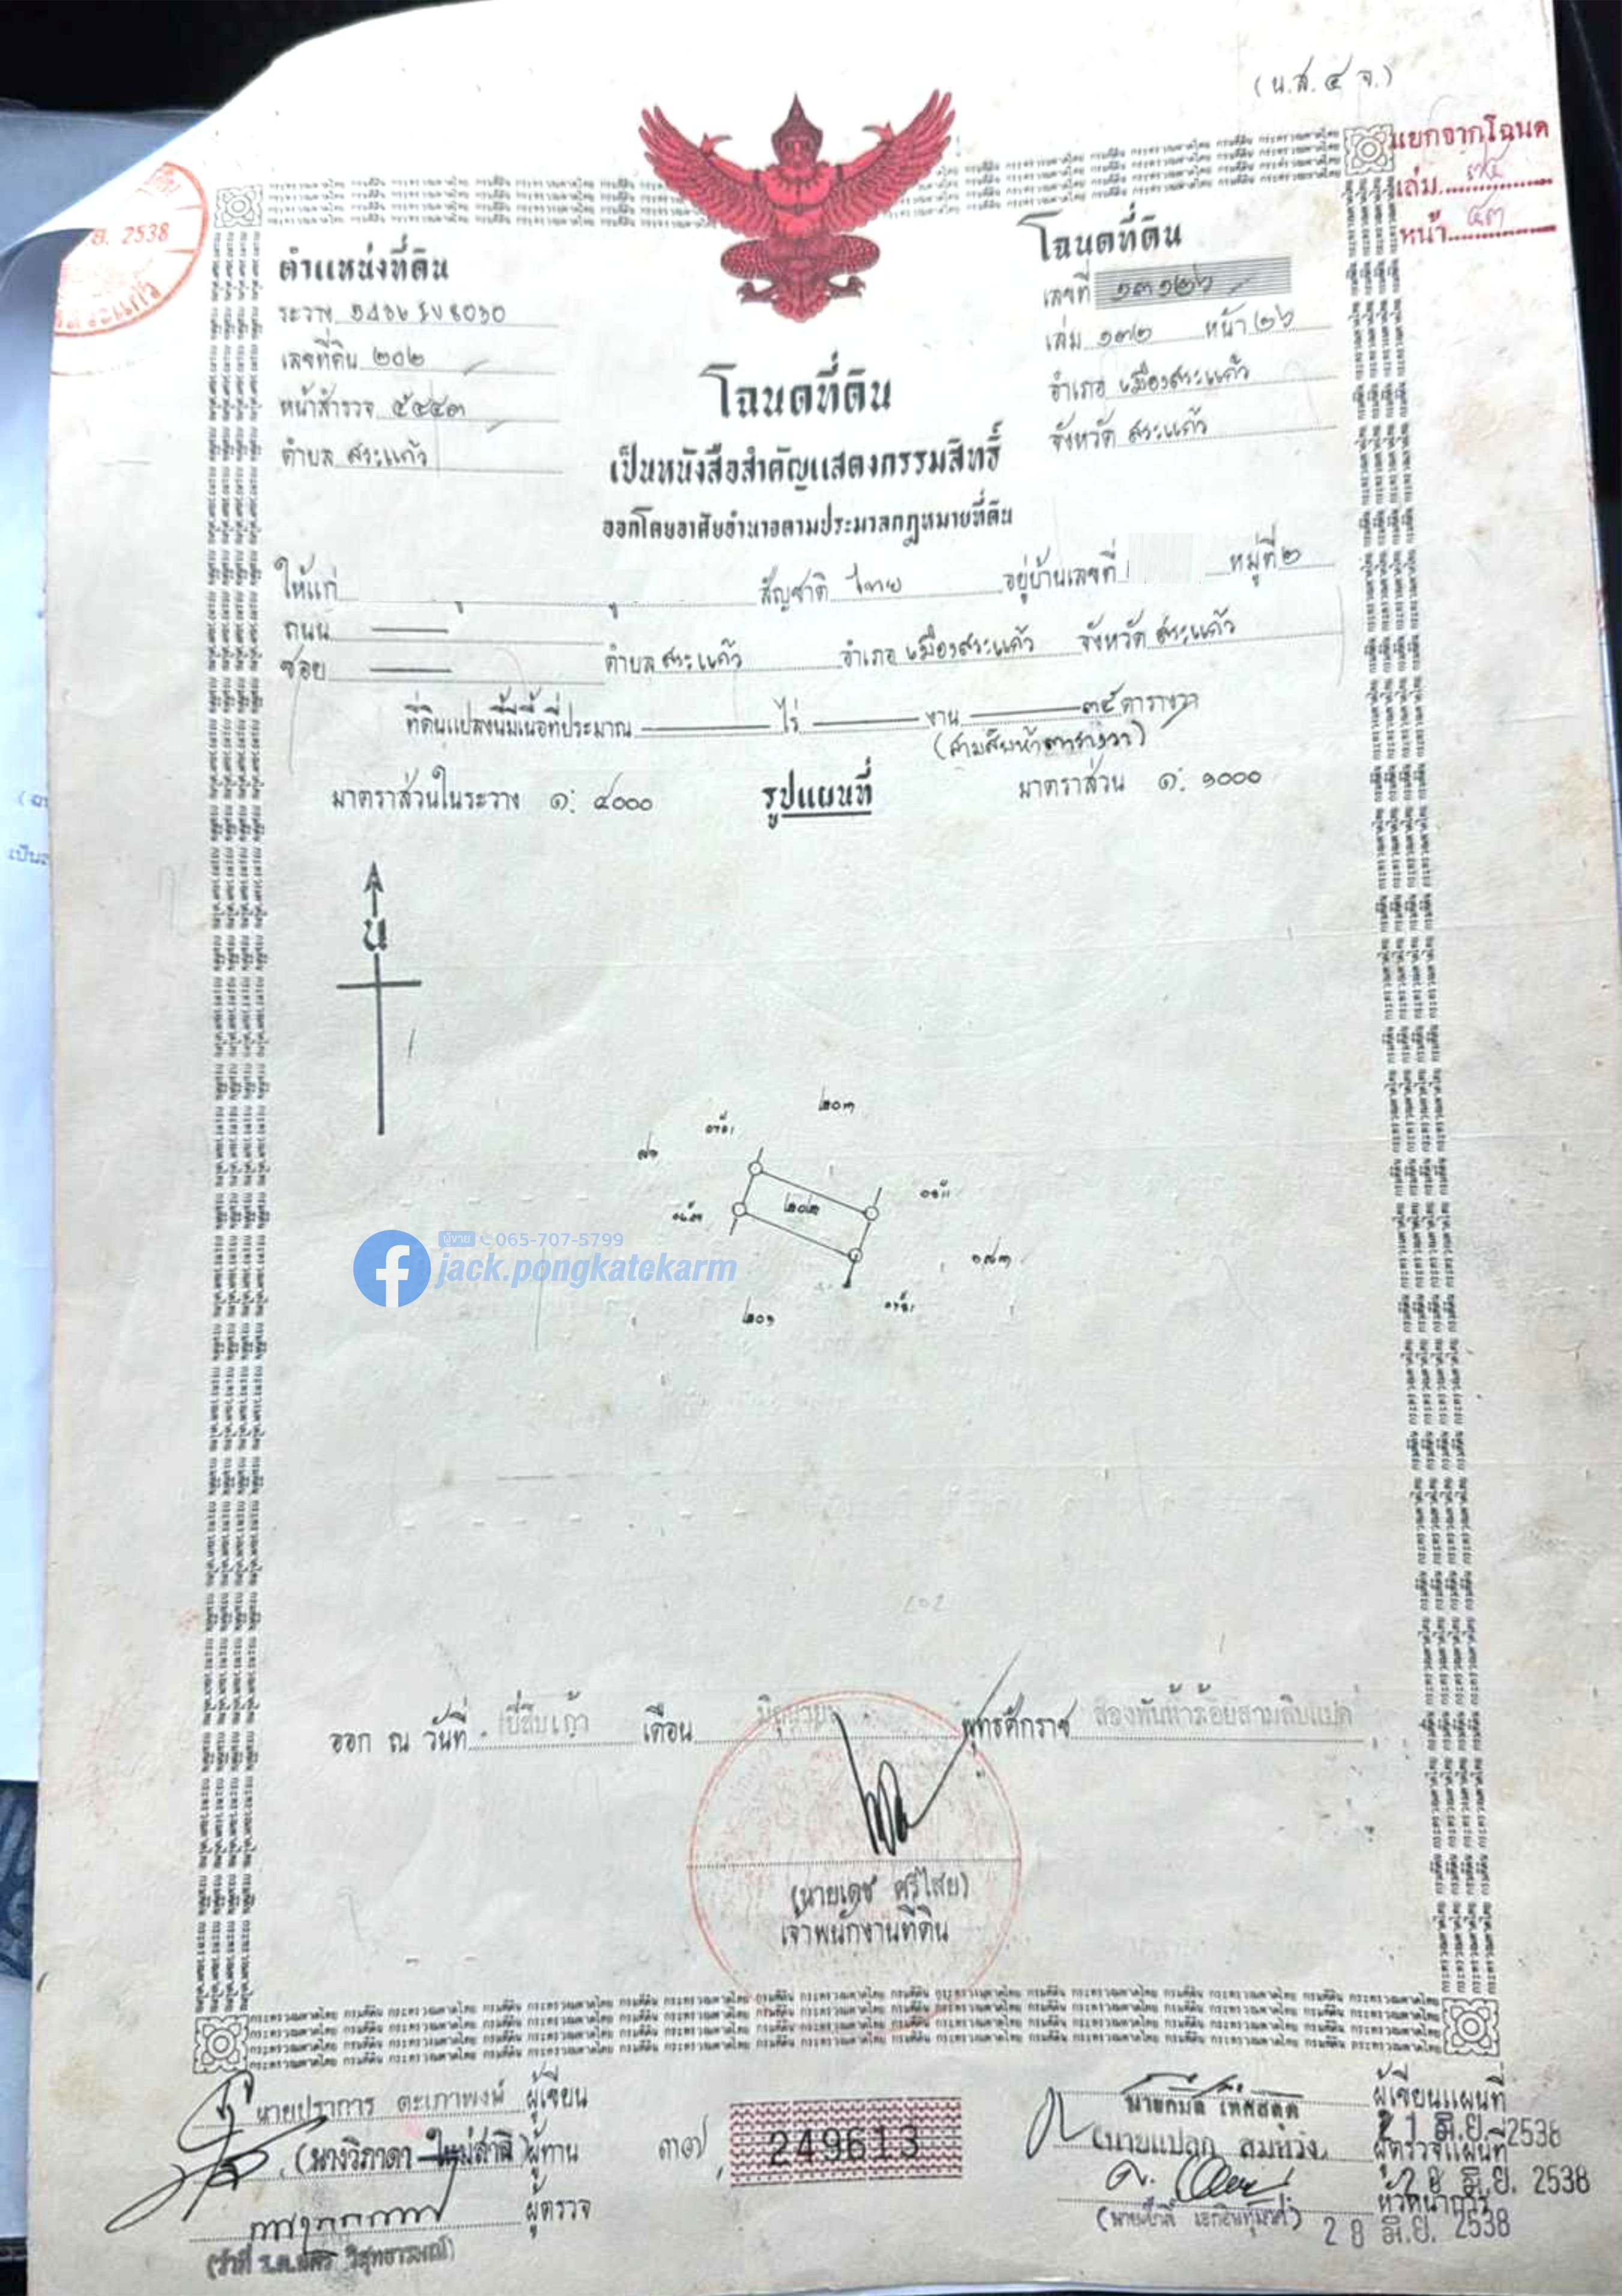 (น.ส. ๔ จ.)
แยกจากโฉนด
เล่ม
หน้า ๔๓
ย. 2538
สระแก้ว
ตำแหน่งที่ดิน
ระวาง
เลขที่ดิน ๒๐๒
หน้าสำรวจ ๕๔๔๓
ตำบล สระแก้ว
โฉนดที่ดิน
เลขที่ ๑๓๑๒๖
เล่ม ๑๓๒ หน้า ๒๖
อำเภอ เมืองสระแก้ว
จังหวัด สระแก้ว
โฉนดที่ดิน
เป็นหนังสือสำคัญแสดงกรรมสิทธิ์
ออกโดยอาศัยอำนาจตามประมวลกฎหมายที่ดิน
ให้แก่ สัญชาติ ไทย อยู่บ้านเลขที่ หมู่ที่ ๒
ถนน
ซอย ตำบล สระแก้ว อำเภอ เมืองสระแก้ว จังหวัด สระแก้ว
ที่ดินแปลงนี้มีเนื้อที่ประมาณ ไร่ งาน ๓๕ ตารางวา
(สามสิบห้าตารางวา)
มาตราส่วนในระวาง ๑: ๔๐๐๐ รูปแผนที่ มาตราส่วน ๑: ๑๐๐๐
น
๒๐๓
๒๐๒
๒๐๑
ผู้ขาย 065-707-5799
jack.pongkatekarm
ออก ณ วันที่ ยี่สิบเก้า เดือน มิถุนายน พุทธศักราช สองพันห้าร้อยสามสิบแปด
(นายเดช ศรีไสย)
เจ้าพนักงานที่ดิน
นายปราการ ตะเภาพงษ์ ผู้เขียน
(นางวิภาดา ใหม่สาลี) ผู้ทาน
ผู้ตรวจ
249613
ผู้เขียนแผนที่
21 มิ.ย. 2538
(นายแปลก สมหวัง) ผู้ตรวจแผนที่
28 มิ.ย. 2538
หัวหน้าการ
28 มิ.ย. 2538